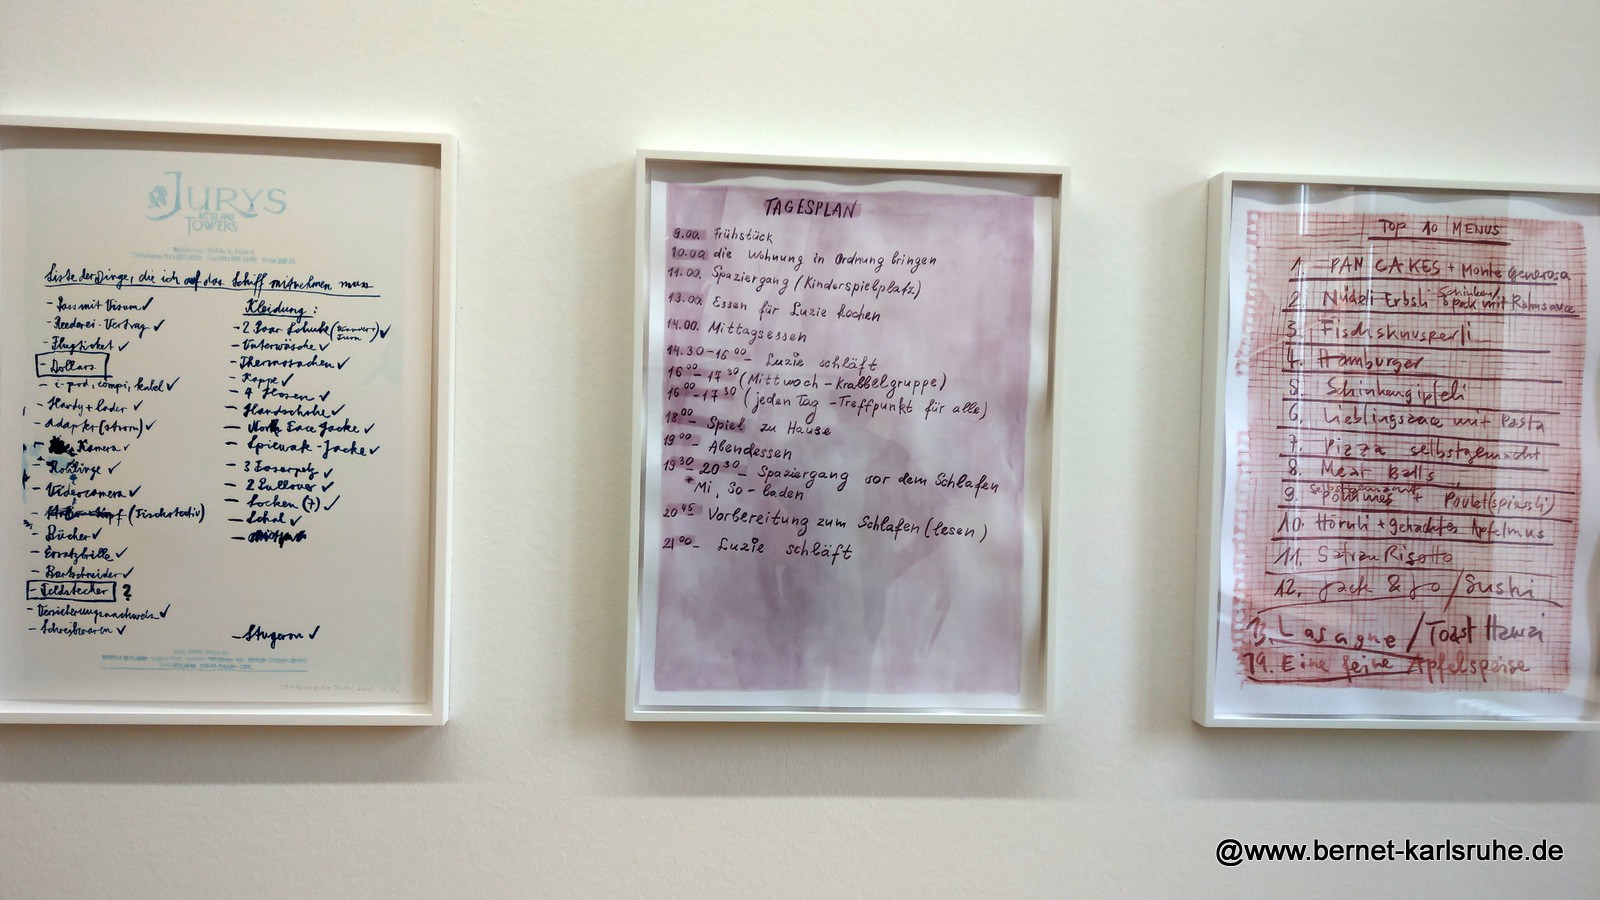 JURYS
TOWERS
Liste der Dinge, die ich auf das Schiff mitnehmen muss
- Pass mit Visum ✓
- Reederei-Vertrag ✓
- Flugticket ✓
- Dollars
- i-pod, compi, kabel ✓
- Handy + lader ✓
- adapter (strom) ✓
Kamera ✓
- Rohlinge ✓
- Videocamera ✓
(Tischstativ)
- Bücher ✓
- Ersatzbrille ✓
- Bartschneider ✓
- Feldstecher ?
- Versicherungsnachweis ✓
- Schreibwaren ✓
Kleidung:
- 2 Paar Schuhe ✓
- Unterwäsche ✓
- Thermosachen ✓
- Kappe ✓
- 4 Hosen ✓
- Handschuhe ✓
- North Face Jacke ✓
- Spiewak-Jacke ✓
- 3 Faserpelz ✓
- 2 Pullover ✓
- Socken (7) ✓
- Schal ✓
- Stugeron ✓
TAGESPLAN
9.00. Frühstück
10.00 die Wohnung in Ordnung bringen
11.00. Spaziergang / Kinderspielplatz)
13.00. Essen für Luzie kochen
14.00. Mittagsessen
14.30-16 00- Luzie schläft
16 00-17 30 (Mittwoch-Krabbelgruppe)
16 00-17 30 (jeden Tag-Treffpunkt für alle)
18 00- Spiel zu Hause
19 00- Abendessen
19 30-20 30- Spaziergang vor dem Schlafen
* Mi, So-baden
20 45 Vorbereitung zum Schlafen (lesen)
21 00- Luzie schläft
TOP 10 MENUS
1. PAN CAKES + Monte generosa
2. Nüdeli Erbsli Schinken/Speck mit Rahmsauce
3. Fischknusperli
4. Hamburger
5. Schinkengipfeli
6. Lieblingssauce mit Pasta
7. Pizza selbstgemacht
8. Meat Balls
9. Pommes + Poulet (spiessli)
10. Hörnli + gehacktes Apfelmus
11. Safran Risotto
12. / Sushi
13. Lasagne / Toast Hawai
14. Eine feine Apfelspeise
@www.bernet-karlsruhe.de